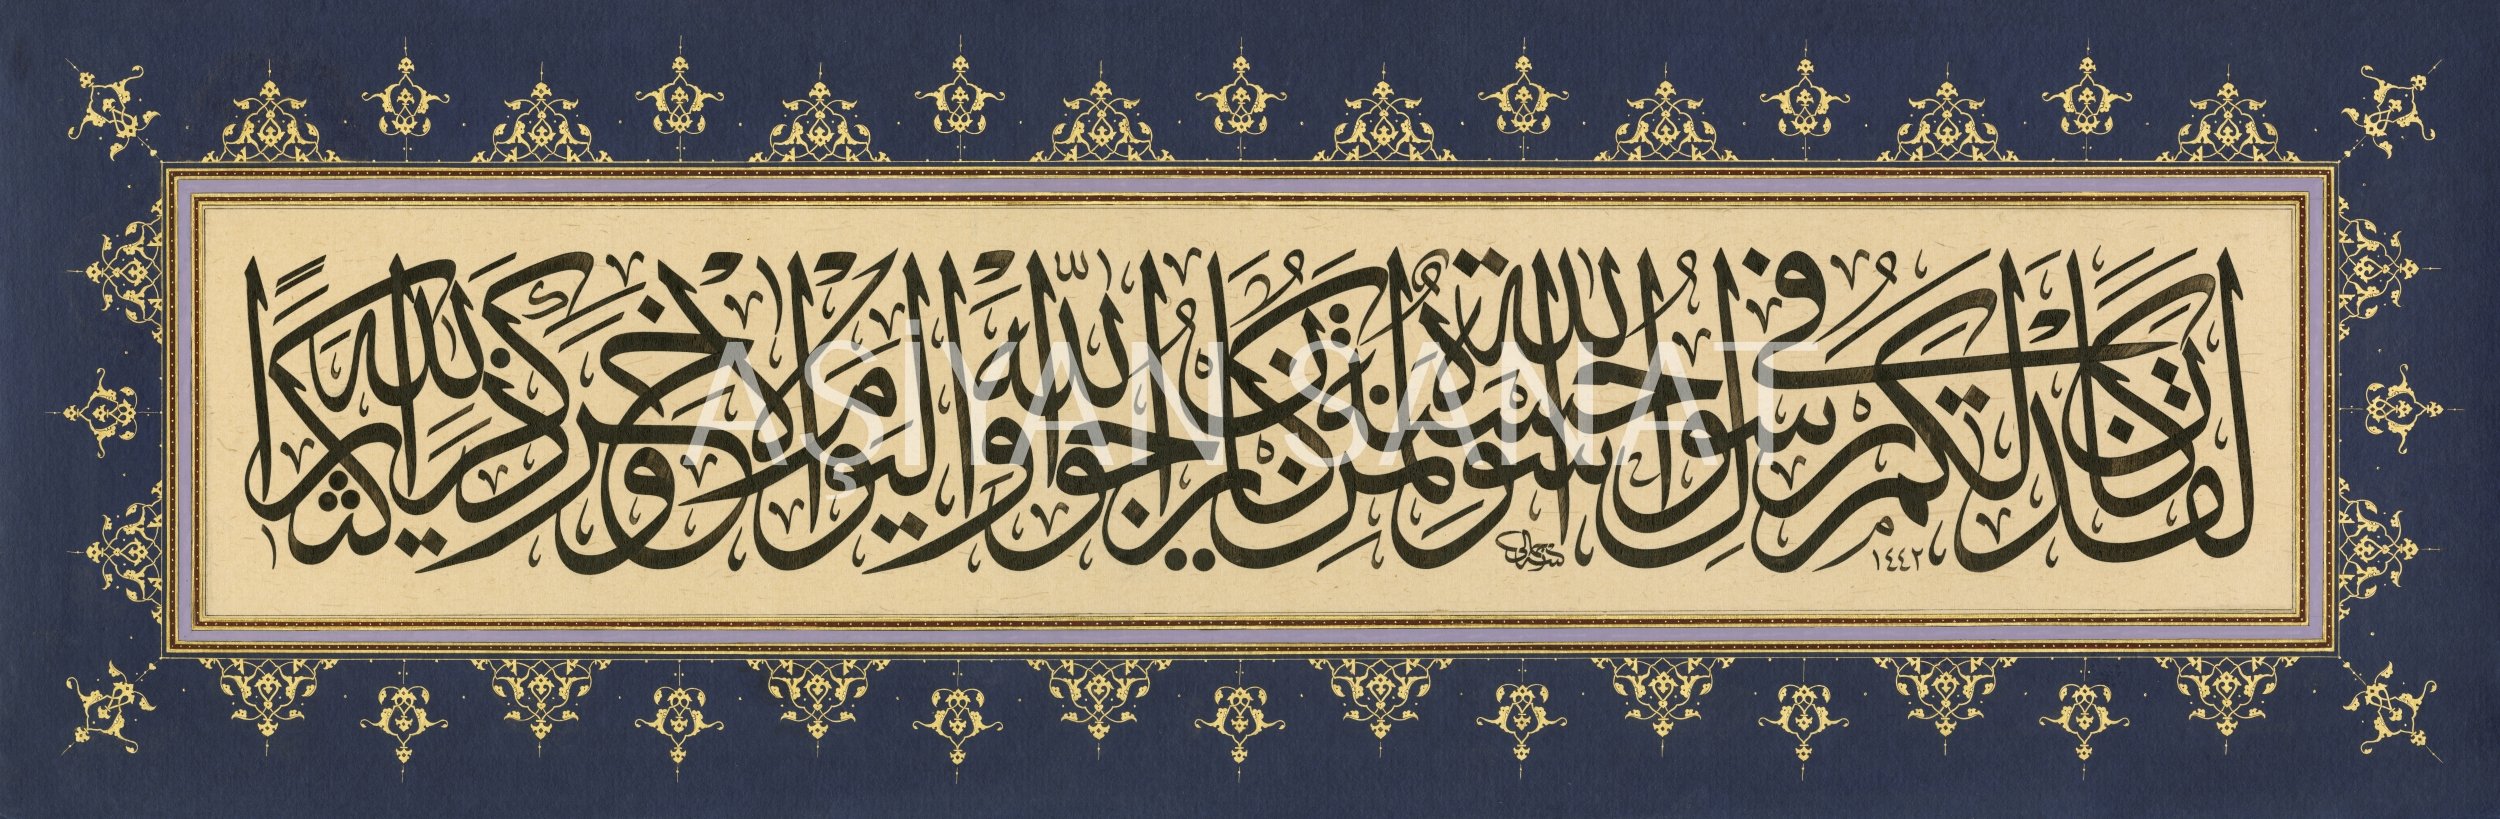 لقد كان لكم في رسول الله أسوة حسنة لمن كان يرجو الله واليوم الآخر وذكر الله كثيرا
١٤٤٢
AŞİYAN SANAT